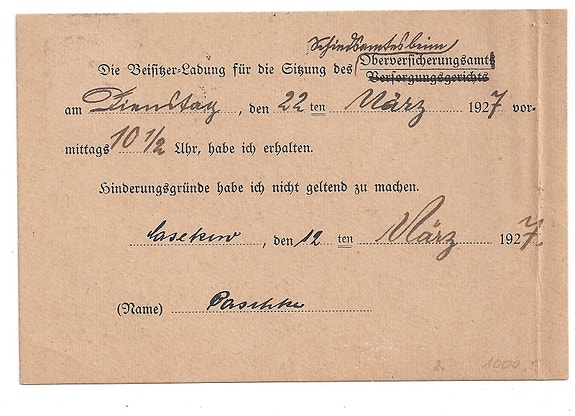 Schiedsamtes beim
Die Beisitzer-Ladung für die Sitzung des Oberversicherungsamts
Versorgungsgerichts
am Dienstag, den 22 ten März 1927 vor-
mittags 10 1/2 Uhr, habe ich erhalten.
Hinderungsgründe habe ich nicht geltend zu machen.
Casekow, den 12 ten März 1927.
(Name) Paschke
2. 1000.-